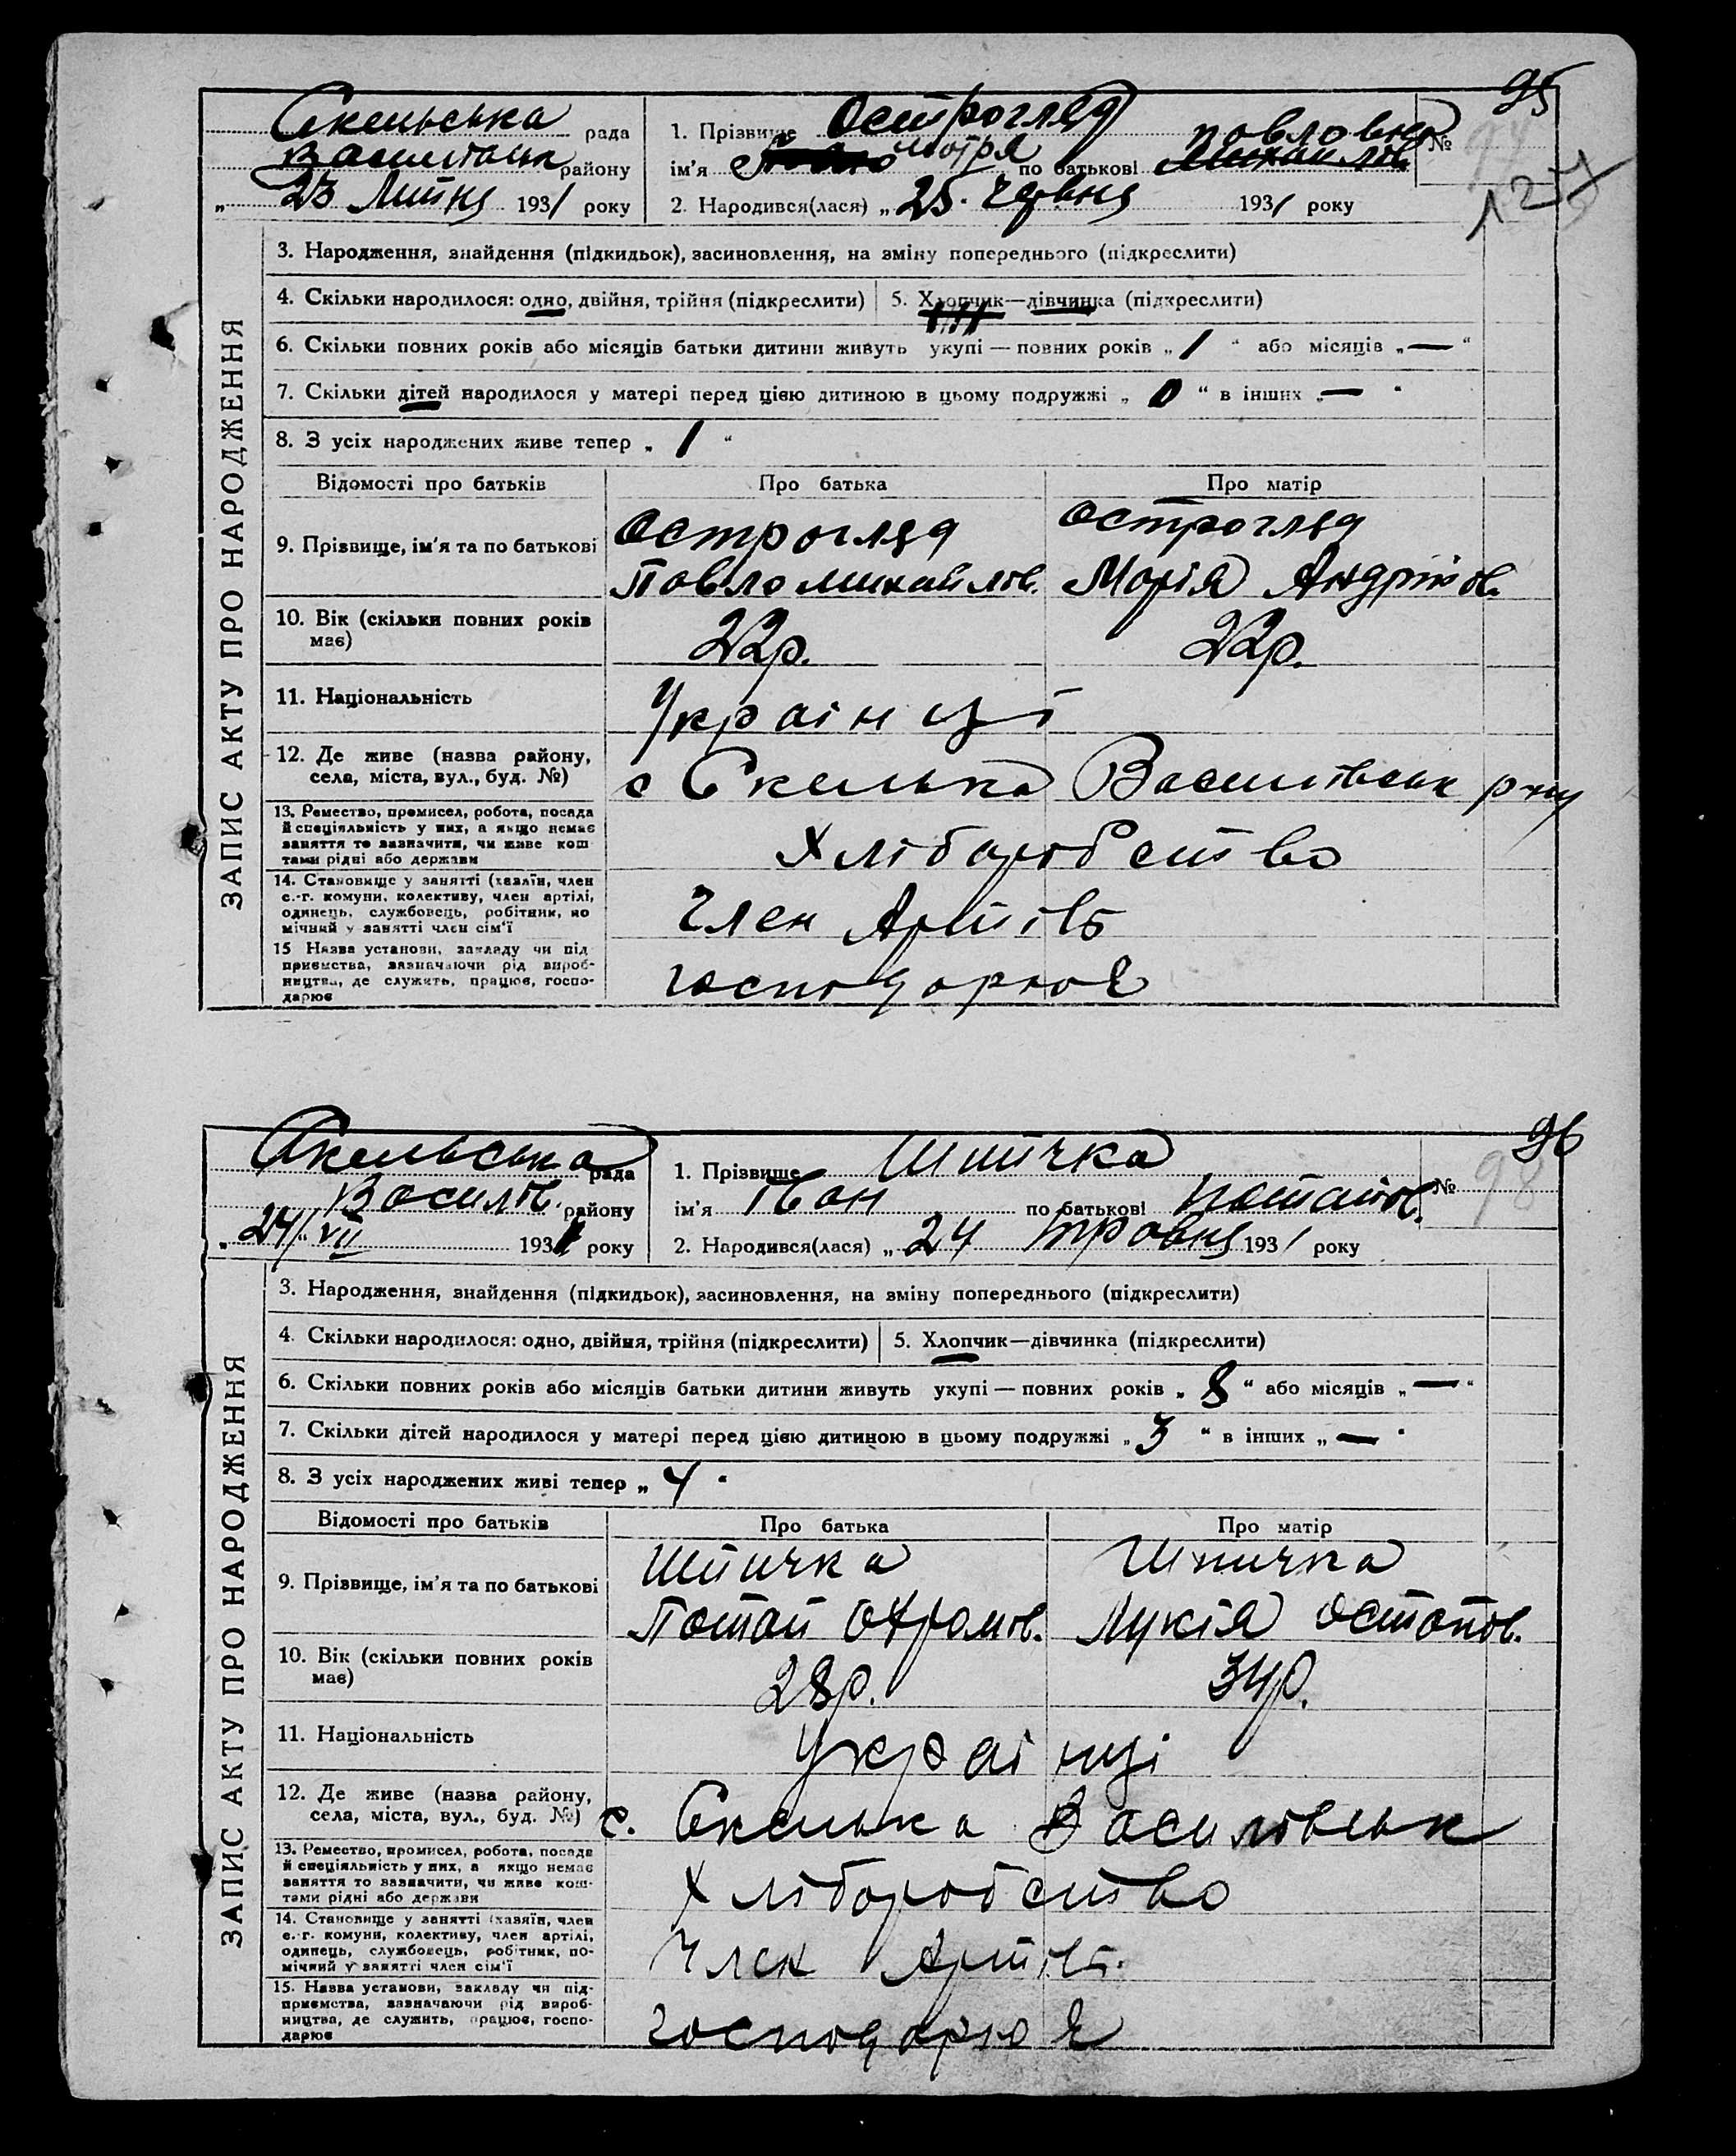 95
Скельська рада
Василівськ району
„ 23 Липня 1931 року
1. ПрізвищеОстрогляд
ім'я Мотря по батькові Павловна
Михайлов
№
127
2. Народився(лася) „ 25. червня 1931 року
ЗАПИС АКТУ ПРО НАРОДЖЕННЯ
3. Народження, знайдення (підкидьок), засиновлення, на зміну попереднього (підкреслити)
4. Скільки народилося: одно, двійня, трійня (підкреслити) 5. Хлопчик—дівчинка (підкреслити)
6. Скільки повних років або місяців батьки дитини живуть укупі — повних років „ 1 “ або місяців „ — “
7. Скільки дітей народилося у матері перед цією дитиною в цьому подружжі „ 0 “ в інших „ — “
8. З усіх народжених живе тепер „ 1 “
Відомості про батьків Про батька Про матір
9. Прізвище, ім'я та по батькові Острогляд Острогляд
Павло Михайлов. Марія Андріїов.
10. Вік (скільки повних років
має) 22р. 22р.
11. Національність Українці
12. Де живе (назва району,
села, міста, вул., буд. №) с Скелька Василівськ р-ну
13. Ремество, промисел, робота, посада
й спеціяльність у них, а якщо немає
заняття то зазначити, чи живе кош
тами рідні або держави Хліборобство
14. Становище у занятті (хазяїн, член
с.-г. комуни, колективу, член артілі,
одинець, службовець, робітник, по
мічний у занятті член сім'ї Член Артілі
15 Назва установи, закладу чи під
приємства, зазначаючи рід вироб-
ництва, де служить, працює, госпо-
дарює господарює
96
Скельська рада
Василів. району
„ 24/VII 1931 року
1. Прізвище Шпичка
ім'я Іван по батькові Потапов.
№ 98
2. Народився(лася) „ 24 травня 1931 року
ЗАПИС АКТУ ПРО НАРОДЖЕННЯ
3. Народження, знайдення (підкидьок), засиновлення, на зміну попереднього (підкреслити)
4. Скільки народилося: одно, двійня, трійня (підкреслити) 5. Хлопчик—дівчинка (підкреслити)
6. Скільки повних років або місяців батьки дитини живуть укупі — повних років „ 8 “ або місяців „ — “
7. Скільки дітей народилося у матері перед цією дитиною в цьому подружжі „ 3 “ в інших „ — “
8. З усіх народжених живі тепер „ 4 “
Відомості про батьків Про батька Про матір
9. Прізвище, ім'я та по батькові Шпичка Шпичка
Потап Охрамов. Лукія Остапов.
10. Вік (скільки повних років
має) 28р. 34р.
11. Національність Українці
12. Де живе (назва району,
села, міста, вул., буд. №) с. Скелька Василівськ
13. Ремество, промисел, робота, посада
й спеціяльність у них, а якщо немає
заняття то зазначити, чи живе кош-
тами рідні або держави Хліборобство
14. Становище у занятті (хазяїн, член
с.-г. комуни, колективу, член артілі,
одинець, службовець, робітник, по-
мічний у занятті член сім'ї Член Артілі
15. Назва установи, закладу чи під-
приємства, зазначаючи рід вироб-
ництва, де служить, працює, госпо-
дарює господарює